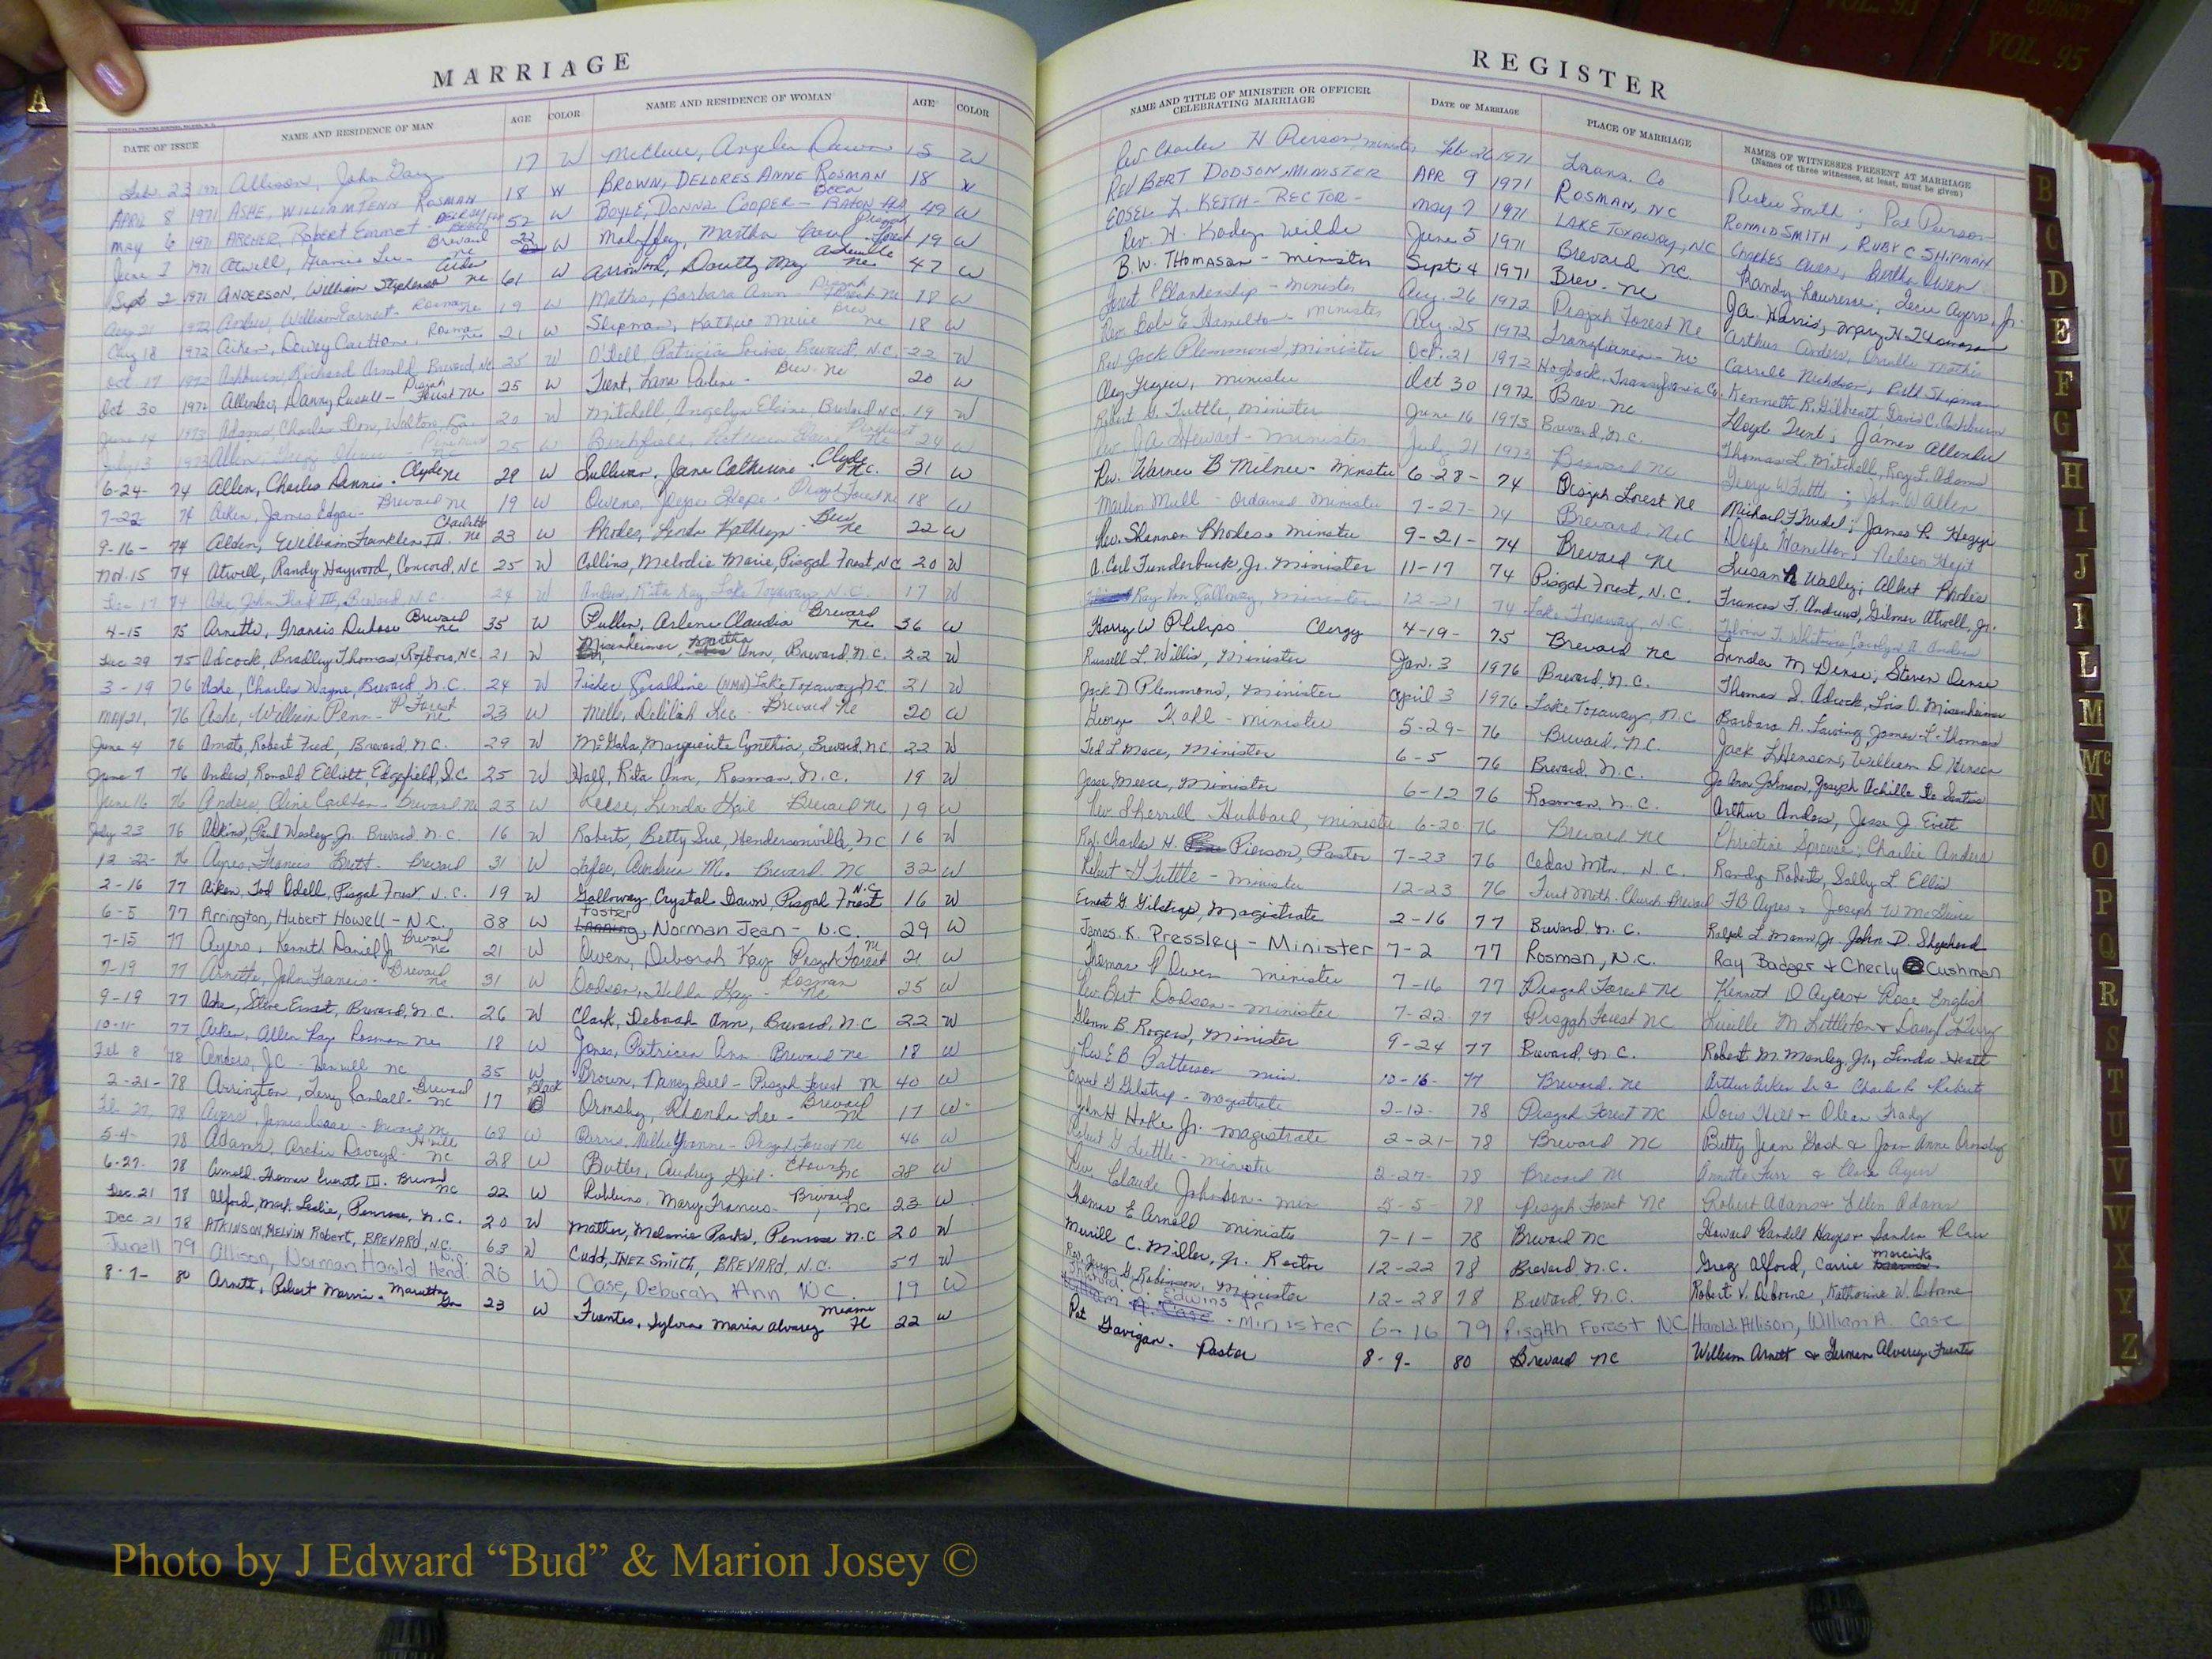 A
COUNTY
VOL. 93
VOL. 95
MARRIAGE
DATE OF ISSUE NAME AND RESIDENCE OF MAN AGE COLOR NAME AND RESIDENCE OF WOMAN AGE COLOR
Feb. 23 1971 Allison, John Gary 17 W McClure, Angelia Dawn 15 W
APRIL 8 1971 ASHE, WILLIAM PENN ROSMAN 18 W BROWN, DELORES ANNE ROSMAN 18 W
May 6 1971 ARCHER, Robert Emmet 52 W BOYLE, DONNA COOPER - BOCA RATON Fla 49 W
June 1971 Atwell, Francis Lee - Brevard NC 22 W Mahaffey, Martha Carol Pisgah Forest 19 W
Sept 2 1971 ANDERSON, William Stephenson NC 61 W Arrowood, Dorothy May Asheville NC 47 W
Aug 21 1972 Anders, William Earnest - Rosman NC 19 W Mathis, Barbara Ann Pisgah Forest NC 18 W
Aug 18 1972 Aiken, Dewey Carlton, Rosman NC 21 W Shipman, Kathie Marie Brev. NC 18 W
Oct 17 1972 Ashburn, Richard Arnold, Brevard, NC 25 W O'Dell Patricia Louise, Brevard, N.C. 22 W
Oct 30 1972 Allender, Danny Russell - Pisgah Forest NC 25 W Trent, Lana Darlene - Brev. NC 20 W
June 14 1973 Adams, Charles Don, Walton, Ga 20 W Mitchell, Angelyn Elaine, Brevard N.C. 19 W
July 13 1973 Allen, 25 W Birchfield, Patricia Pinehurst NC 24 W
6-24- 74 Allen, Charles Dennis - Clyde NC 29 W Sullivan, Jane Catherine - Clyde NC. 31 W
7-22 74 Aiken, James Edgar - Brevard NC 19 W Owens, Joyce Hope - Pisgah Forest NC 18 W
9-16- 74 Alden, William Franklin III. Charlotte NC 23 W Rhodes, Linda Kathryn - Brev NC 22 W
Nov. 15 74 Atwell, Randy Hayword, Concord, NC 25 W Collins, Melodie Marie, Pisgah Forest, NC 20 W
Dec 17 74 Ashe John Thad III, Brevard N.C. 24 W Anders, Rita Kay Lake Toxaway N.C. 17 W
4-15 75 Arnette, Francis Dubose Brevard NC 35 W Pullen, Arlene Claudia Brevard NC 36 W
Dec 29 75 Adcock, Bradley Thomas, Roxboro, NC 21 W Misenheimer, Martha Ann, Brevard, N.C. 22 W
3-19 76 Ashe, Charles Wayne, Brevard, N.C. 24 W Fisher, Geraldine (NMN) Lake Toxaway N.C. 21 W
May 21, 76 Ashe, William Penn - P Forest NC 23 W Mills, Delilah Lee - Brevard NC 20 W
June 4 76 Amato, Robert Fred, Brevard, N.C. 29 W McGaha, Marguerite Cynthia, Brevard, N.C. 22 W
June 7 76 Anders, Ronald Elliott, Edgefield, S.C 25 W Hall, Rita Ann, Rosman, N.C. 19 W
June 16 76 Anders, Cline Carlton - Brevard NC 23 W Reese, Linda Gail Brevard NC 19 W
July 23 76 Adkins, Paul Wesley Jr. Brevard N.C. 16 W Roberts, Betty Sue, Hendersonville, NC 16 W
12-22- 76 Ayres, Francis Brett - Brevard 31 W Andrea M. Brevard NC 32 W
2-16 77 Aiken, Ted Odell, Pisgah Forest N.C. 19 W Galloway, Crystal Dawn, Pisgah Forest N.C. 16 W
6-5 77 Arrington, Hubert Howell - N.C. 38 W Foster, Norman Jean - N.C. 29 W
7-15 77 Ayers, Kenneth Daniel Jr Brevard NC 21 W Owen, Deborah Kay Pisgah Forest NC 21 W
7-19 77 Arnette, John Francis - Brevard NC 31 W Dodson, Willa Gay - Rosman NC 25 W
9-19 77 Ashe, Steve Ernest, Brevard, N.C. 26 W Clark, Deborah Ann, Brevard, N.C 22 W
10-11- 77 Aiken, Allen Ray Rosman NC 18 W Jones, Patricia Ann - Brevard NC 18 W
Feb 8 78 Anders, JC - NC 35 W Brown, Nancy Bell - Pisgah Forest NC 40 W
2-21- 78 Arrington, Terry Randall - Brevard NC 17 Black Ormsby, Rhonda Lee - Brevard NC 17 W
Feb 27, 78 Ayers, James Isaac - Brevard NC 68 W Parris, Nellie Yvonne - Pisgah Forest NC 46 W
5-4- 78 Adams, Archie Devoyd - H'ville NC 28 W Butler, Audrey Gail - NC 28 W
6-27. 78 Arnold, Thomas Everett III. Brevard NC 22 W Robbins, Mary Frances - Brevard, NC 23 W
Dec. 21 78 Alford, Mark Leslie, Penrose, N.C. 20 W Mather, Melanie Parks, Penrose N.C 20 W
Dec 21 78 ATKINSON, MELVIN Robert, BREVARD, N.C. 63 W Cudd, INEZ SMITH, BREVARD, N.C. 57 W
June 11 79 Allison, Norman Harold Hend. N.C. 20 W Case, Deborah Ann N.C. 19 W
8-7- 80 Arnett, Robert Morris - Marietta Ga 23 W Fuentes, Sylvia Maria Alvarez Miami Fl 22 W
REGISTER
NAME AND TITLE OF MINISTER OR OFFICER CELEBRATING MARRIAGE DATE OF MARRIAGE PLACE OF MARRIAGE NAMES OF WITNESSES PRESENT AT MARRIAGE
(Names of three witnesses, at least, must be given)
Rev. Charles H Pierson, minister Feb 26 1971 Trans. Co Rickie Smith ; Pat Pierson
REV BERT DODSON, MINISTER APR 9 1971 ROSMAN, NC RONALD SMITH, RUBY C SHIPMAN
EDSEL L. KEITH - RECTOR - May 7 1971 LAKE TOXAWAY, N.C. Charles Owen, Bertha Owen
Rev. H. Kadey Wilde June 5 1971 Brevard NC. Randy Lawrence, Ayers, Jr.
B.W. THOMASON - minister Sept. 4 1971 Brev. NC J.A. Harris, Mary H. Thomason
Forest P Blankenship - Minister Aug. 26 1972 Pisgah Forest NC Arthur Anders, Orville Mathis
Rev. Bob E. Hamilton - Minister Aug. 25 1972 Transylvania - NC Carroll Nicholson, Beth Shipman
Rev. Jack Plemmons, Minister Oct. 21 1972 Hogback, Transylvania Co. Kenneth R. Gilbreatt, David C. Ashburn
Alex Frazier, minister Oct 30 1972 Brev. NC Lloyd Trent; James Allender
Robert G. Tuttle, Minister June 16 1973 Brevard, N.C. Thomas L. Mitchell, Roy L. Adams
Rev. J.A. Stewart - Minister July 21 1973 Brevard NC George W Tuttle ; John W Allen
Rev. Warner B Milner - Minister 6-28- 74 Pisgah Forest NC Michael F. Trudel; James R.
Marlin Mull - Ordained Minister 7-27- 74 Brevard, N.C Hamilton; Nelson
Rev. Shannon Rhodes - minister 9-21- 74 Brevard NC Susan Walley; Albert Rhodes
A. Carl Funderburk, Jr. Minister 11-17 74 Pisgah Forest, N.C. Frances F. Andrews, Gilmer Atwell, Jr.
Ray Von Galloway, Minister 12-21 74 Lake Toxaway, N.C. T. Whitmire Carolyn A. Anders
Harry W Philips Clergy 4-19- 75 Brevard NC Linda M Dense; Steven Dense
Russell L. Willis, Minister Jan. 3 1976 Brevard, N.C. Thomas D. Adcock, Lois O. Misenheimer
Jack D. Plemmons, Minister April 3 1976 Lake Toxaway, N.C Barbara A. Lawing James L. Thomas
George Kahl - Minister 5-29- 76 Brevard, N.C. Jack L Henson, William D Henson
Ted L Mace, Minister 6-5 76 Brevard, N.C. Jo Ann Johnson, Joseph Achille De Santis
Jesse Meece, Minister 6-12 76 Rosman, N.C. Arthur Anders, Jesse J. Evett
Rev. Sherrill Hubbard, Minister 6-20 76 Brevard NC Christine Sprouse, Charlie Anders
Rev. Charles H. Pierson, Pastor 7-23 76 Cedar Mtn., N.C. Randy Roberts, Sally L. Ellis
Robert G Tuttle - Minister 12-23 76 First Meth. Church Brevard FB Ayres & Joseph W McGuire
Ernest G. Gilstrap, Magistrate 2-16 77 Brevard, N.C. Ralph L Mann, Jr. John D. Shepherd
James. K. Pressley - Minister 7-2 77 Rosman, N.C. Ray Badger & Cherly Cushman
Thomas P Owen Minister 7-16 77 Pisgah Forest NC Kenneth D Ayers & Rose English
Rev. Bert Dodson - Minister 7-22 77 Pisgah Forest NC Lucille M Littleton & Daryl
Glenn B. Rogers, Minister 9-24 77 Brevard, N.C. Robert M. Manley, Jr., Linda Heath
Rev. E B Patterson Min. 10-16- 77 Brevard NC Arthur Aiken Sr & Charles R
Ernest G Gilstrap - Magistrate 2-12- 78 Pisgah Forest NC Doris Hill & Olean
John H Hoke Jr. Magistrate 2-21- 78 Brevard NC Betty Jean Gash & Joan Anne Ormsby
Robert G Tuttle - Minister 2-27- 78 Brevard NC Annette Furr & Clara Ayers
Rev. Claude Johnson - min 5-5- 78 Pisgah Forest NC Robert Adams & Ellen Adams
Thomas E Arnold Minister 7-1- 78 Brevard NC Howard Randell Hayes & Sandra R
Merrill C. Miller, Jr. Rector 12-22 78 Brevard, N.C. Greg Alford, Carrie
Rev. G. Robinson, Minister 12-28 78 Brevard, N.C. Robert V. Osborne, Katharine W. Osborne
Edwins Jr
William A. Case - Minister 6-16 79 Pisgah Forest NC Harold Allison, William A. Case
Pat Gavigan - Pastor 8-9- 80 Brevard NC William Arnett & German Alvarez Fuentes
B
C
D
E
F
G
H
I
J
K
L
M
Mc
N
O
P
Q
R
S
T
U
V
W
X
Y
Z
Photo by J Edward “Bud” & Marion Josey ©